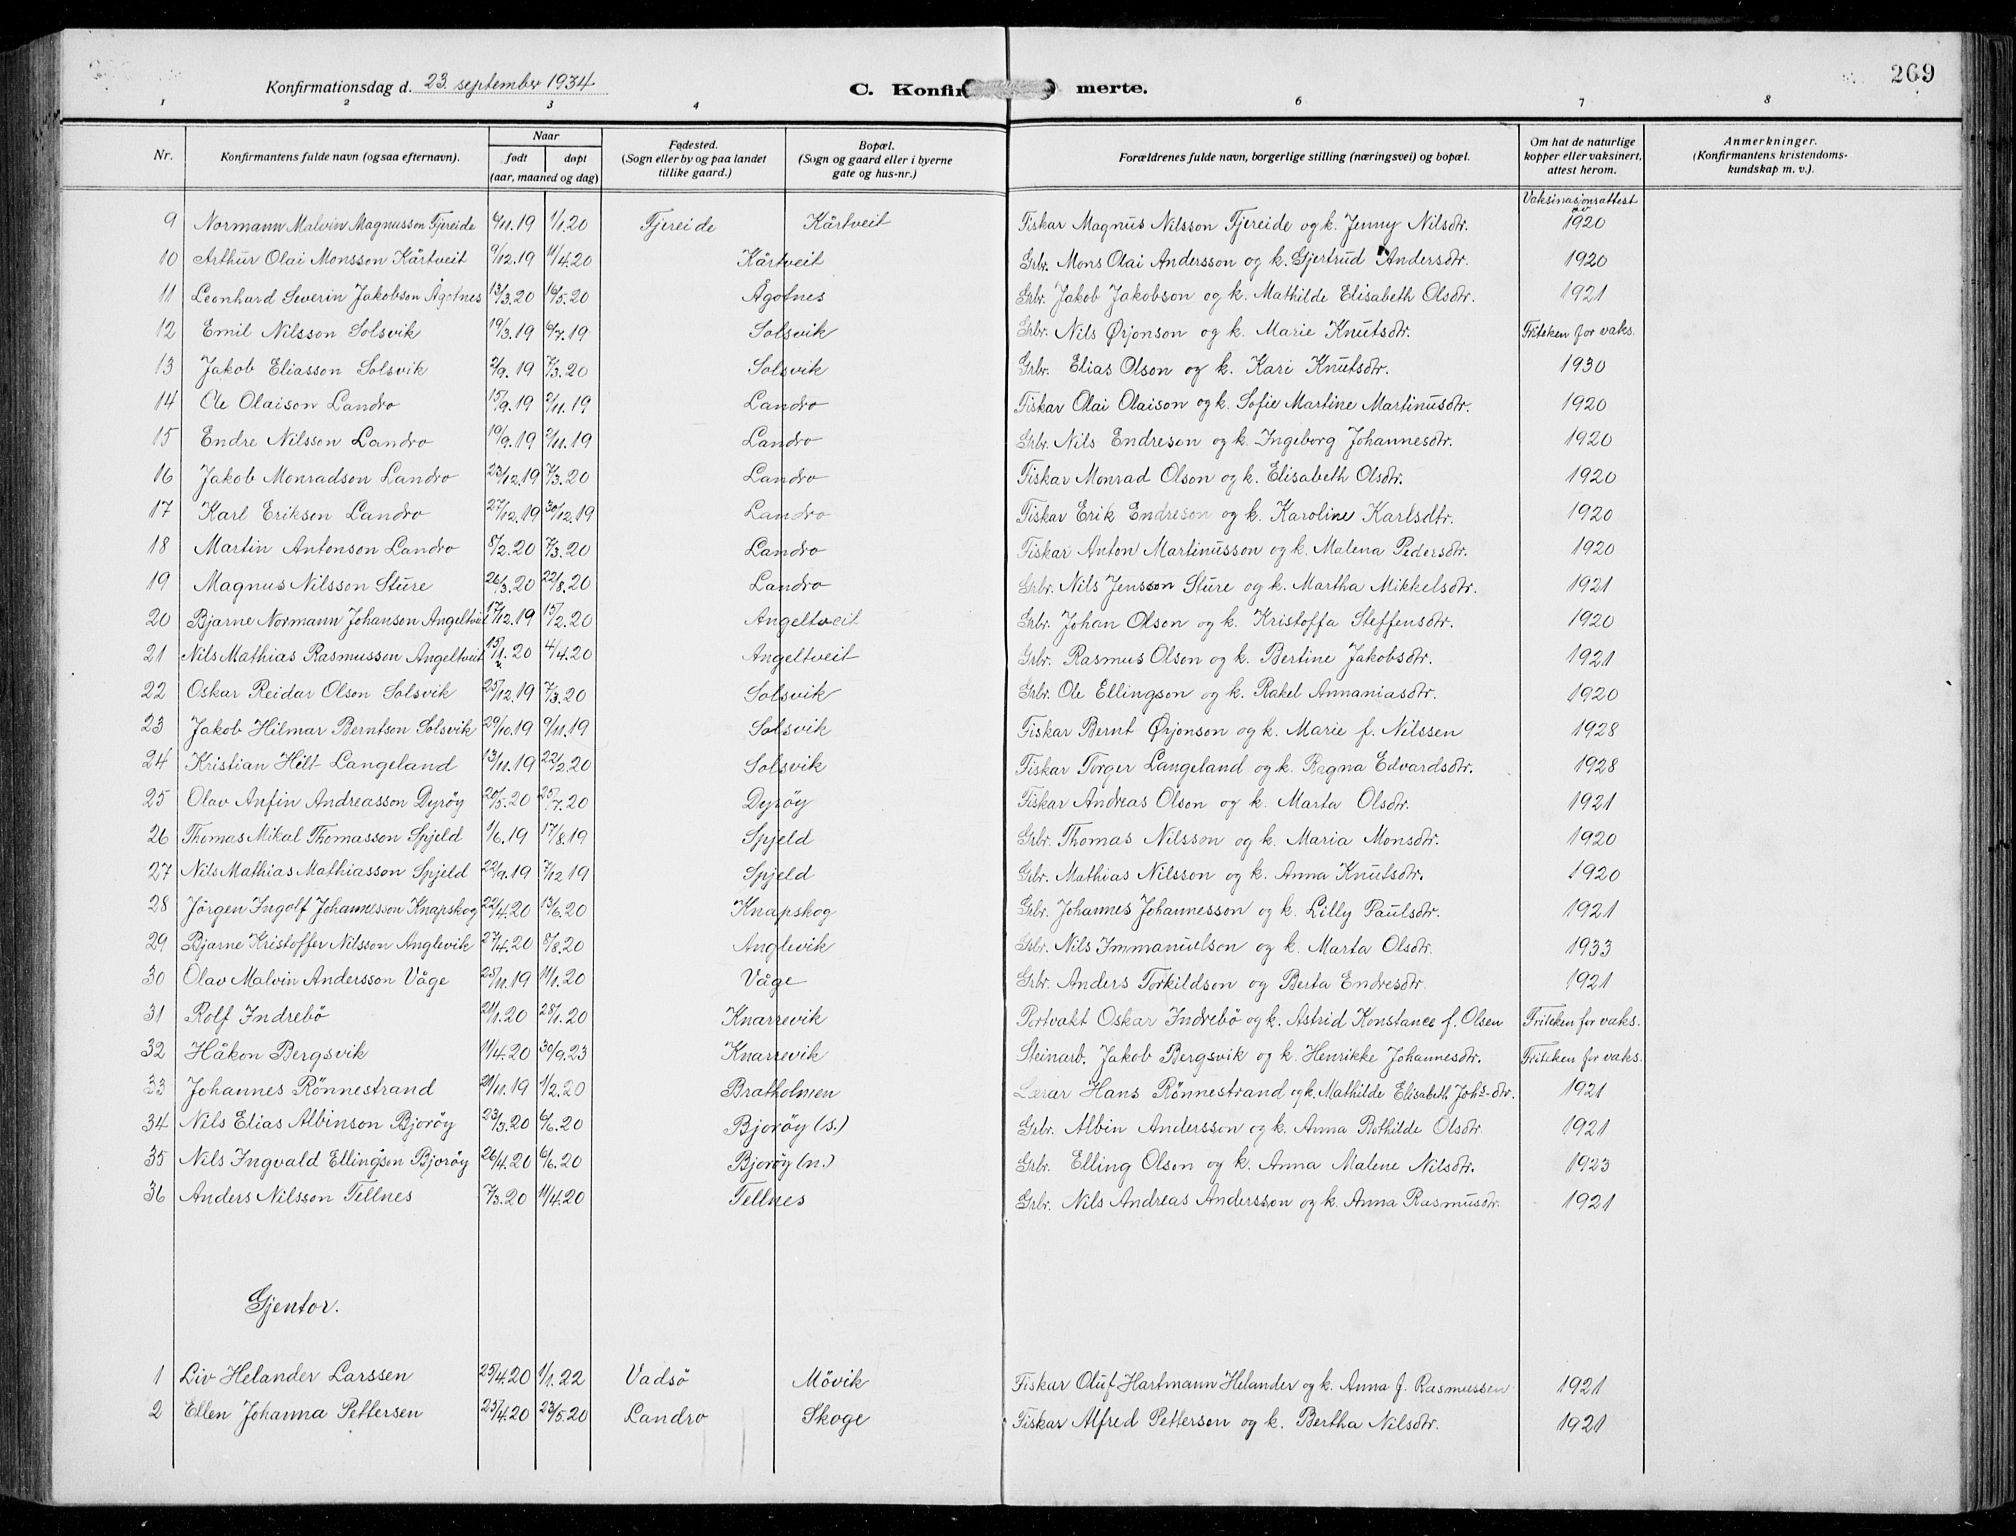 269
Konfirmationsdag d. 23. september 1934
C. Konfir merte.
1 2 3 4 6 7 8
Nr. Konfirmantens fulde navn (ogsaa efternavn). Naar født døpt (aar, maaned og dag) Fødested. (Sogn eller by og paa landet tillike gaard.) Bopæl. (Sogn og gaard eller i byerne gate og hus-nr.) Forældrenes fulde navn, borgerlige stilling (næringsvei) og bopæl. Om hat de naturlige kopper eller vaksinert, attest herom. Anmerkninger. (Konfirmantens kristendoms-kundskap m. v.).
Vaksinasjonsattest av
9 Normann Malvin Magnusson Fjereide 6/11.19 1/1.20 Fjereide Kårtveit Fiskar Magnus Nilsson Fjereide og k. Jenny Nilsdtr. 1920
10 Arthur Olai Monsson Kårtveit 9/12.19 11/4.20 Kårtveit Grbr. Mons Olai Andersson og k. Gjertrud Andersdtr. 1920
11 Leonhard Severin Jakobson Ågotnes 13/3.20 16/5.20 Ågotnes Grbr. Jakob Jakobson og k. Mathilde Elisabeth Olsdtr. 1921
12 Emil Nilsson Solsvik 19/3.19 6/7.19 Solsvik Grbr. Nils Ørjonson og k. Marie Knutsdtr. Friteken for vaks.
13 Jakob Eliasson Solsvik 2/9.19 7/3.20 Solsvik Grbr. Elias Olson og k. Kari Knutsdtr. 1930
14 Ole Olaison Landro 15/9.19 2/11.19 Landro Fiskar Olai Olaison og k. Sofie Martine Martinusdtr. 1920
15 Endre Nilsson Landro 19/9.19 2/11.19 Landro Grbr. Nils Endreson og k. Ingeborg Johannesdtr. 1920
16 Jakob Monradson Landro 23/12.19 7/3.20 Landro Fiskar Monrad Olson og k. Elisabeth Olsdtr. 1920
17 Karl Erikson Landro 27/12.19 30/12.19 Landro Fiskar Erik Endreson og k. Karoline Karlsdtr. 1920
18 Martin Antonson Landro 8/2.20 7/3.20 Landro Fiskar Anton Martinusson og k. Malena Pedersdtr. 1920
19 Magnus Nilsson Sture 26/3.20 22/8.20 Landro Grbr. Nils Jensson Sture og k. Martha Mikkelsdtr. 1921
20 Bjarne Normann Johanson Angeltveit 17/12.19 15/2.20 Angeltveit Grbr. Johan Olson og k. Kristoffa Steffensdtr. 1920
21 Nils Mathias Rasmusson Angeltveit 15/1.20 4/4.20 Angeltveit Grbr. Rasmus Olson og k. Bertine Jakobsdtr. 1921
22 Oskar Reidar Olson Solsvik 25/12.19 7/3.20 Solsvik Grbr. Ole Ellingson og k. Rakel Annaniasdtr. 1920
23 Jakob Hilmar Berntson Solsvik 29/10.19 9/11.19 Solsvik Fiskar Bernt Ørjonson og k. Marie f. Nilssen 1928
24 Kristian Hilt Langeland 13/11.19 22/2.20 Solsvik Fiskar Torger Langeland og k. Ragna Edvardsdtr. 1928
25 Olav Anfin Andreasson Dyrøy 20/5.20 25/7.20 Dyrøy Fiskar Andreas Olson og k. Marta Olsdtr. 1921
26 Thomas Mikal Thomasson Spjeld 1/6.19 17/8.19 Spjeld Grbr. Thomas Nilsson og k. Maria Monsdtr. 1920
27 Nils Mathias Mathiasson Spjeld 22/9.19 7/12 19 Spjeld Grbr. Mathias Nilsson og k. Anna Knutsdtr. 1920
28 Jörgen Ingolf Johannesson Knapskog 22/4.20 13/6.20 Knapskog Grbr. Johannes Johannesson og k. Lilly Paulsdtr. 1921
29 Bjarne Kristoffer Nilsson Anglevik 27/4.20 8/8.20 Anglevik Grbr. Nils Immanuelson og k. Marta Olsdtr. 1933
30 Olav Malvin Andersson Våge 25/11.19 11/1.20 Våge Grbr. Anders Torkildson og Berta Endresdtr. 1921
31 Rolf Indrebö 21/1.20 28/1.20 Knarrevik Portvakt Oskar Indrebö og k. Astrid Konstance f. Olsen Friteken for vaks.
32 Håkon Bergsvik 11/4.20 30/9.23 Knarrevik Steinarb. Jakob Bergsvik og k. Henrikke Johannesdtr. Friteken for vaks.
33 Johannes Rönnestrand 21/11.19 1/2.20 Bratholmen Lærar Hans Rönnestrand og k. Mathilde Elisabeth Johs-dtr. 1921
34 Nils Elias Albinson Bjorøy 23/3.20 6/6.20 Bjorøy (s.) Grbr. Albin Andersson og k. Anna Bothilde Olsdtr. 1921
35 Nils Ingvald Ellingson Bjorøy 26/4.20 6/6.20 Bjorøy (n.) Grbr. Elling Olson og k. Anna Malene Nilsdtr. 1923
36 Anders Nilsson Tellnes 7/3.20 11/4.20 Tellnes Grbr. Nils Andreas Andersson og k. Anna Rasmusdtr. 1921
Gjentor.
1 Liv Helander Larssen 25/4.20 1/1.22 Vadsö Mövik Fiskar Oluf Hartmann Helander og k. Anna f. Rasmussen 1921
2 Ellen Johanna Pettersen 25/4.20 23/5.20 Landro Skoge Fiskar Alfred Petterson og k. Bertha Nilsdtr. 1921